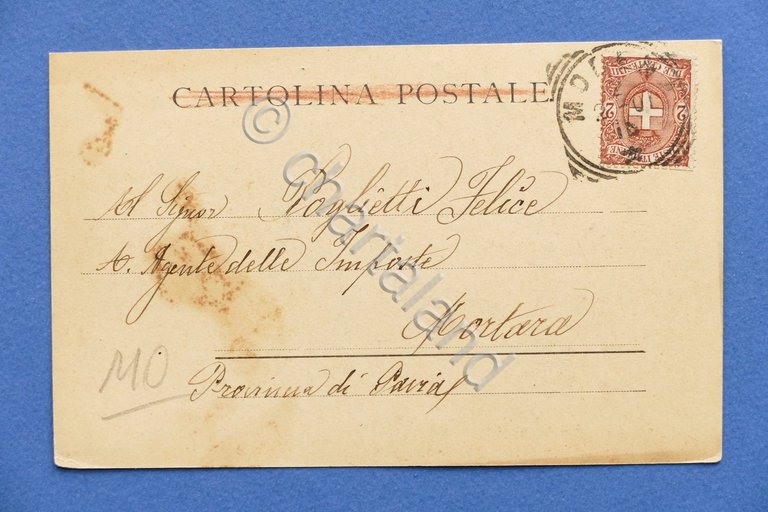 CARTOLINA POSTALE
MODENA
DUE CENTESIMI
2 2
POSTE ITALIANE
Al Signor Voglietti Felice
A. Agente delle Imposte
Mortara
Provincia di Pavia
MO
© chartaland